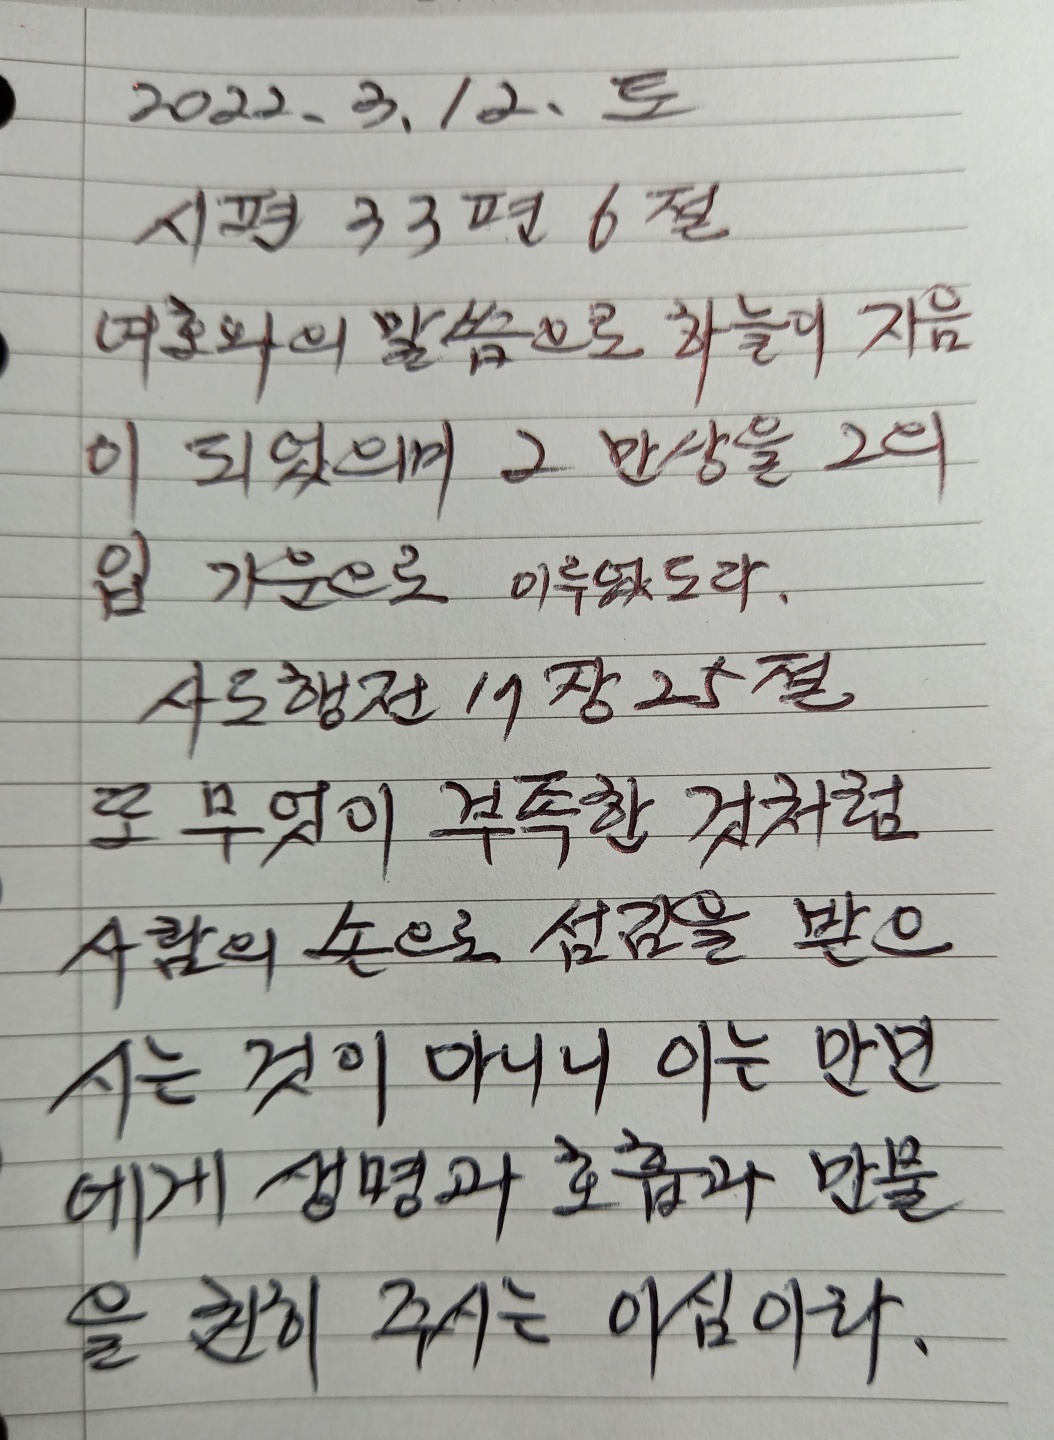 2022. 3. 12. 토
시편 33편 6절
여호와의 말씀으로 하늘이 지음
이 되었으며 그 만상을 그의
입 기운으로 이루었도다.
사도행전 17장 25절
또 무엇이 부족한 것처럼
사람의 손으로 섬김을 받으
시는 것이 아니니 이는 만민
에게 생명과 호흡과 만물
을 친히 주시는 이심이라.